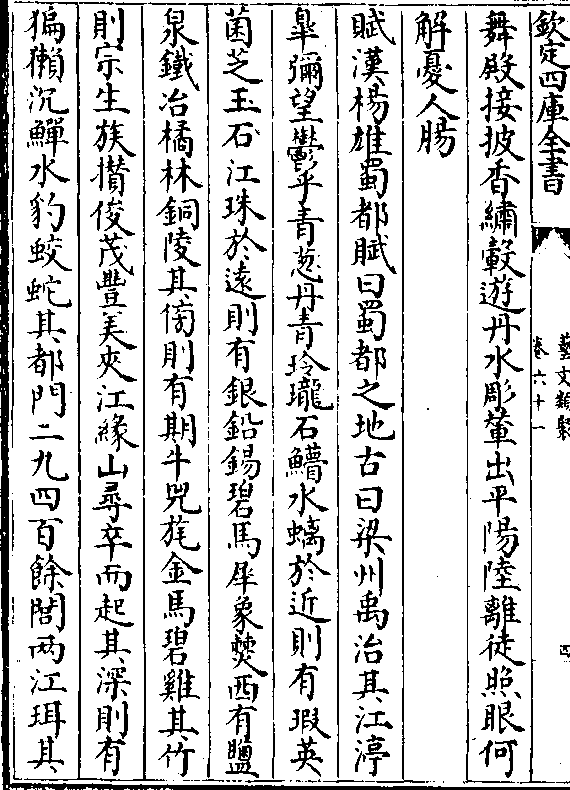 欽定四庫全書
藝文類聚
卷六十一
四
舞殿接披香繡轂遊丹水彫輦出平陽陸離徒照眼何
解憂人腸
賦漢楊雄蜀都賦曰蜀都之地古曰梁州禹治其江渟
臯彌望鬱乎青葱丹青玲瓏石鱛水螭於近則有瑕英
菌芝玉石江珠於遠則有銀鉛錫碧馬犀象僰西有鹽
泉鐵冶橘林銅陵其傍則有期牛兕旄金馬碧雞其竹
則宗生族攢俊茂豐美夾江緣山尋卒而起其深則有
猵獺沉鱓水豹蛟蛇其都門二九四百餘閭兩江珥其